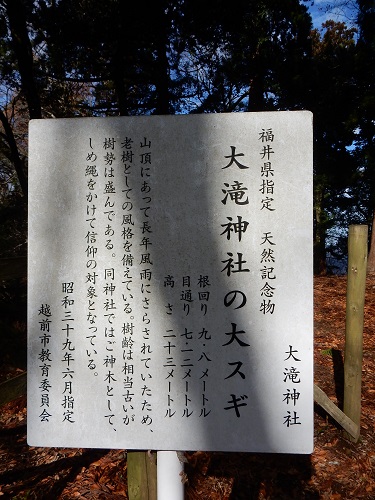 福井県指定　天然記念物
大滝神社の大スギ
大滝神社
根回り　九・八メートル
目通り　七・一二メートル
高　さ　二十三メートル
山頂にあって長年風雨にさらされていたため
老樹としての風格を備えている。樹齢は相当古いが
樹勢は盛んである。同神社ではご神木として、
しめ縄をかけて信仰の対象となっている。
昭和三十九年六月指定
越前市教育委員会